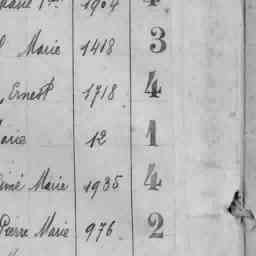 Marie 1904 4
Marie 1418 3
Ernest 1718 4
Marie 12 1
Aimé Marie 1935 4
Pierre Marie 976 2